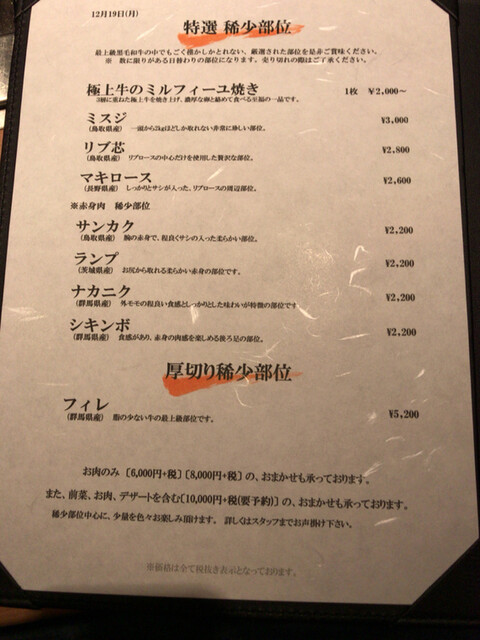 12月19日(月)
特選 稀少部位
最上級黒毛和牛の中でもごく僅かしかとれない、厳選された部位を是非ご賞味ください。
※ 数に限りがある日替わりの部位になります。売り切れの際はご了承ください。
極上牛のミルフィーユ焼き 1枚 ¥2,000~
3層に重ねた極上牛を焼き上げ、濃厚な卵と絡めて食べる至福の一品です。
ミスジ ¥3,000
(鳥取県産) 一頭から2kgほどしか取れない非常に珍しい部位。
リブ芯 ¥2,800
(鳥取県産) リブロースの中心だけを使用した贅沢な部位。
マキロース ¥2,600
(長野県産) しっかりとサシが入った、リブロースの周辺部位。
※赤身肉 稀少部位
サンカク ¥2,200
(鳥取県産) 腕の赤身で、程良くサシの入った柔らかい部位。
ランプ ¥2,200
(茨城県産) お尻から取れる柔らかい赤身の部位です。
ナカニク ¥2,200
(群馬県産) 外モモの程良い食感としっかりとした味わいが特徴の部位です
シキンボ ¥2,200
(群馬県産) 食感があり、赤身の肉感を楽しめる後ろ足の部位。
厚切り稀少部位
フィレ ¥5,200
(群馬県産) 脂の少ない牛の最上級部位です。
お肉のみ 〔6,000円+税〕〔8,000円+税〕の、おまかせも承っております。
また、前菜、お肉、デザートを含む〔10,000円+税(要予約)〕の、おまかせも承っております。
稀少部位中心に、少量を色々お楽しみ頂けます。 詳しくはスタッフまでお声掛け下さい。
※価格は全て税抜き表示となっております。